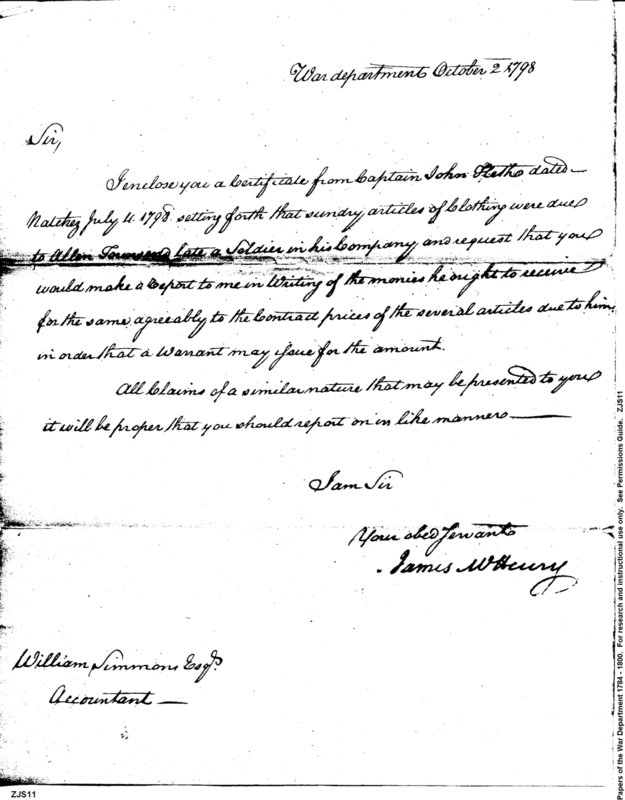 War department October 2 1798
Sir,
I enclose you a Certificate from Captain John dated
Natchez July 4. 1798. setting forth that sundry articles of Clothing were due
to Allen Townsend late a Soldier in his Company, and request that you
would make a report to me in Writing of the monies he ought to receive
for the same, agreeably to the Contract prices of the several articles due to him,
in order that a Warrant may issue for the amount.
All Claims of a similar nature that may be presented to you
it will be proper that you should report on in like manner
I am Sir
Your obed Servant
James McHenry
William Simmons Esqr.
Accountant
Papers of the War Department 1784 - 1800. For research and instructional use only. See Permissions Guide. ZJS11
ZJS11